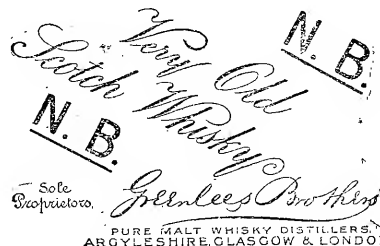 N. B.
Very Old
Scotch Whisky
N. B.
Sole
Proprietors,
Greenlees Brothers
PURE MALT WHISKY DISTILLERS.
ARGYLESHIRE, GLASGOW & LONDO